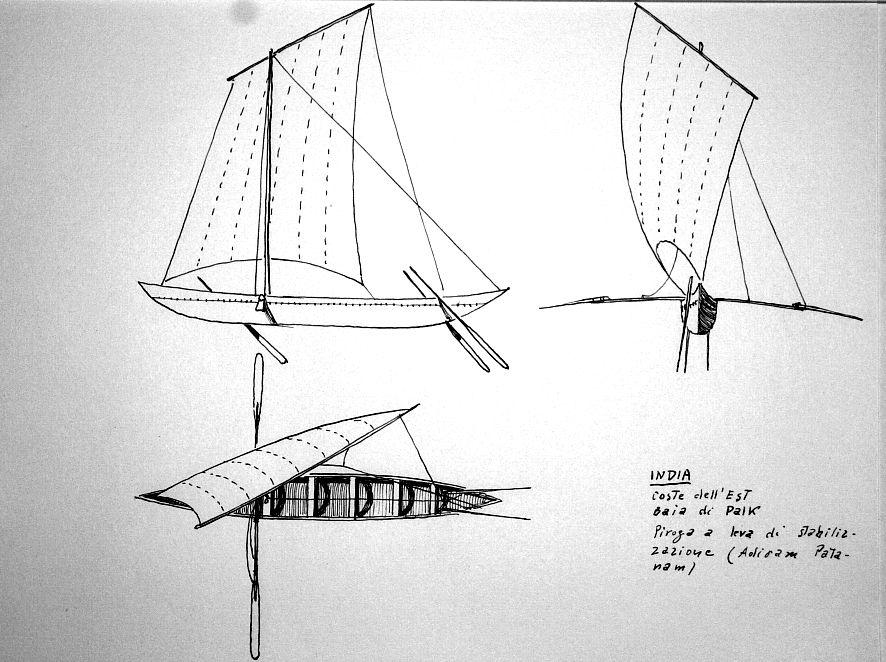 INDIA
Coste dell'Est
Baia di Palk
Piroga a leva di stabiliz-
zazione (Adiram Pata-
nam)